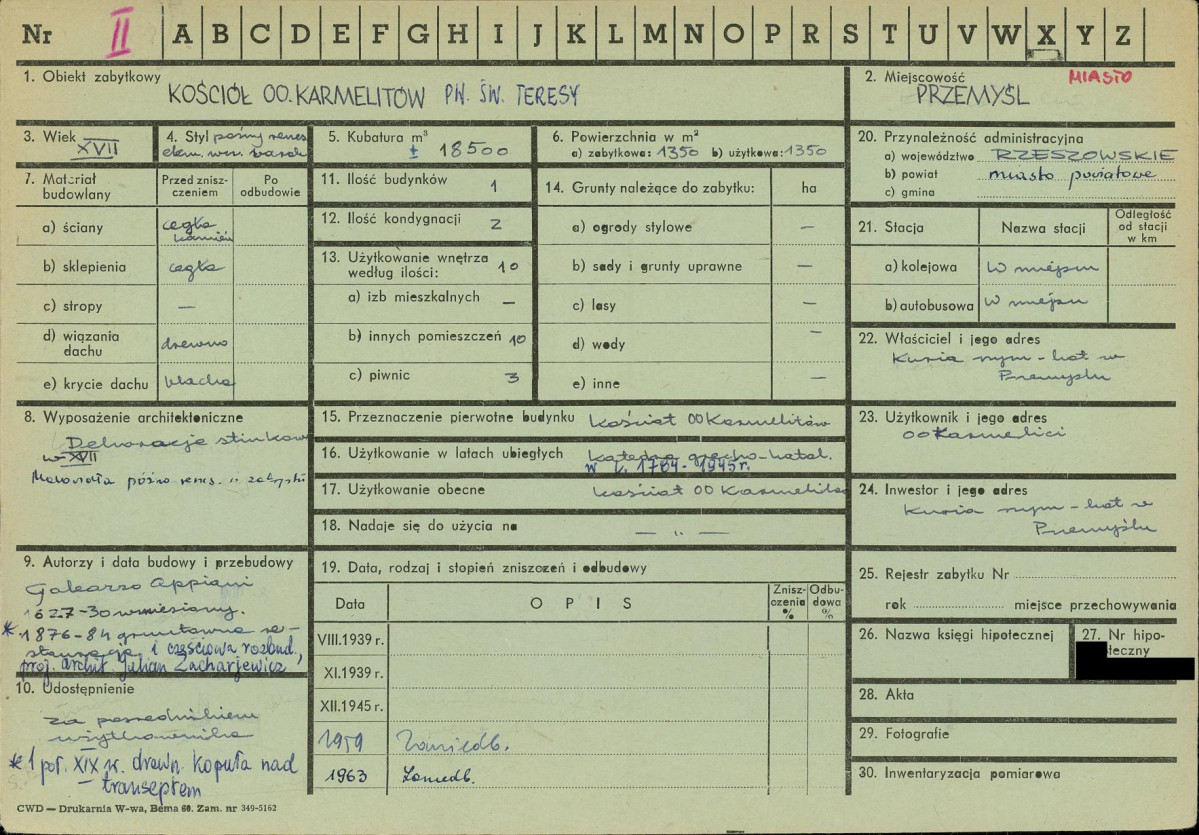 Nr II A B C D E F G H I J K L M N O P R S T U V W X Y Z
1. Obiekt zabytkowy
KOŚCIÓŁ OO. KARMELITÓW PW. ŚW. TERESY
2. Miejscowość MIASTO
PRZEMYŚL
3. Wiek XVII
4. Styl późny renes
elem. wcz. barok
5. Kubatura m³
± 18500
6. Powierzchnia w m²
a) zabytkowa: 1350 b) użytkowa: 1350
20. Przynależność administracyjna
a) województwo RZESZOWSKIE
b) powiat miasto powiatowe
c) gmina
7. Materiał budowlany
Przed zniszczeniem
Po odbudowie
a) ściany cegła kamień
b) sklepienia cegła
c) stropy —
d) wiązania dachu drewno
e) krycie dachu blacha
11. Ilość budynków 1
12. Ilość kondygnacji 2
13. Użytkowanie wnętrza według ilości: 10
a) izb mieszkalnych —
b) innych pomieszczeń 10
c) piwnic 3
14. Grunty należące do zabytku: ha
a) ogrody stylowe —
b) sady i grunty uprawne —
c) lasy —
d) wody —
e) inne —
21. Stacja Nazwa stacji Odległość od stacji w km
a) kolejowa w miejscu
b) autobusowa w miejscu
22. Właściciel i jego adres
Kuria rzym-kat w
Przemyślu
8. Wyposażenie architektoniczne
Dekoracje stiukow
w XVII
Malowidła późno renes.
15. Przeznaczenie pierwotne budynku kościół OO Karmelitów
16. Użytkowanie w latach ubiegłych katedra grecko-katol.
w l. 1784-1945r.
17. Użytkowanie obecne kościół OO Karmelitów
18. Nadaje się do użycia na — „ —
23. Użytkownik i jego adres
OO Karmelici
24. Inwestor i jego adres
Kuria rzym-kat w
Przemyślu
9. Autorzy i data budowy i przebudowy
Galeazzo Appiani
1627-30 wzniesiony.
* 1876-84 gruntowna re-
stauracja i częściowa rozbud.,
proj. archit. Julian Zacharjewicz,
10. Udostępnienie
za pośrednictwem
użytkownika
* 1 poł. XIX w. drewn. kopuła nad
transeptem
19. Data, rodzaj i stopień zniszczeń i odbudowy
Data OPIS Zniszczenia % Odbudowa %
VIII.1939 r.
XI.1939 r.
XII.1945 r.
1959 Zaniedb.
1963 Zaniedb.
25. Rejestr zabytku Nr
rok miejsce przechowywania
26. Nazwa księgi hipotecznej
27. Nr hipoteczny
28. Akta
29. Fotografie
30. Inwentaryzacja pomiarowa
CWD — Drukarnia W-wa, Bema 60. Zam. nr 349-5162